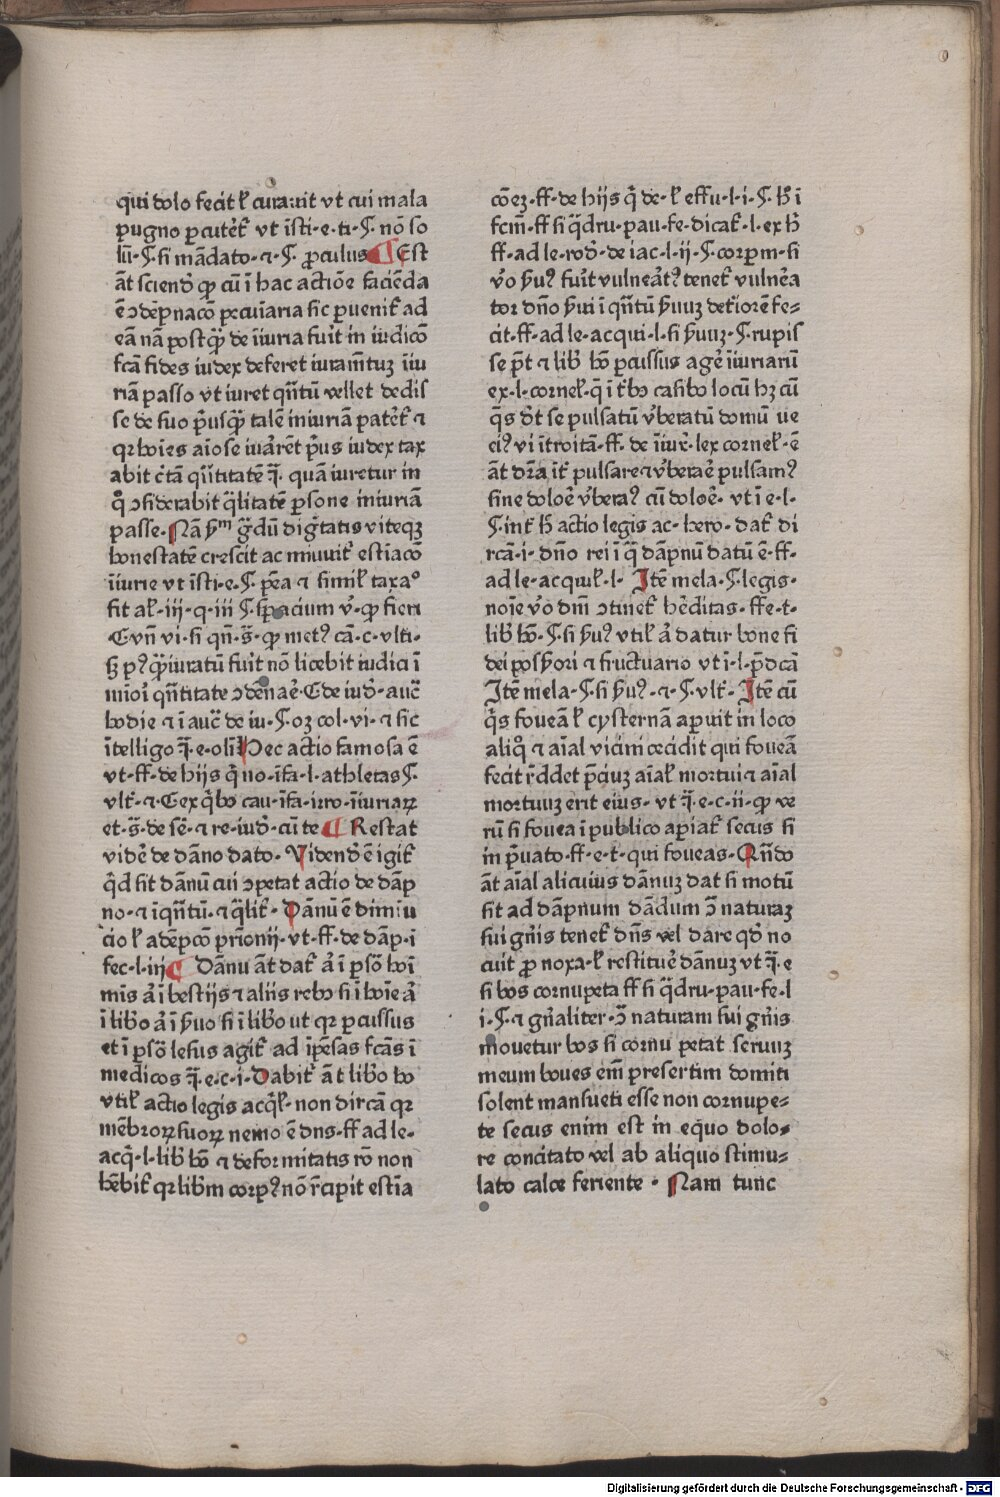 qui dolo fecit ł curauit vt cui mala
pugno ꝑcutēt᷑ vt īsti·e·ti·§· nō so
lū·§·si mādato·⁊·§· ꝓculus ¶ Est
āt sciend̄ ꝙ cū ī hac actiōe faciēda
ē ↄdēpnacō pecuīaria sic ꝑuenit᷑ ad
eā nā postꝙ̄ de īiuria fuit in iudicō
fcā fides iudex deferet iuramt̄uꝫ īiu
riā passo vt iuret qn̄tū vellet dedis
se de suo pi̾usꝙ̄ talē iniuriā patēt᷑ ⁊
qꝛ hoīes aīose iuar̄ēt pi̾us iudex tax
abit c̄tā qn̄titatē q̄·quā iuretur in
qͦ ↄsiderabit q̄litatē ꝑsone iniuriā
passe· Nā ẜm gͣdū dignitatis viteqꝫ
honestatē crescit ac minuit᷑ estīacō
īiurie vt īsti·e·§· pēa ⁊ simil᷑ taxaͦ
fit al᷑·iij·q·iii §·spacium v̾·ꝙ fieri
·Evn̄ vi·si qn̄·s̄·ꝙ metꝰ cā·c·vlti·
sꝫ pꝰ ꝙ̄ iuratū fuit nō licebit iudici ī
mīoi̾ qn̄titate ↄdēnae̾·C de iud̄·auc̄
hodie ⁊ ī auc̄ de iu·§·oꝫ col·vi·⁊ sic
ītelligo q̄·e·oli Hec actio famosa ē
vt·ff·de hijs qi̾ no·īfa·l·athletas §·
vlt᷑·⁊·C ex qi̾bꝫ cau·īfa·irro·īiuriaꝝ
et·s̄·de sē·⁊ re·iud̄·cū te ¶ Restat
vidē de dāno dato· Vidend̄ ē igit᷑
qi̾d sit dānū cui ↄpetat actio de dāp
no·⁊ īqn̄tū·⁊ qͣlit᷑· Dānū ē diminu
cio ł adēpcō pr̄ionij·vt·ff·de dāp·ī
fec·l·iij ¶ Dānū āt dat᷑ a̾ ī ꝑsō hoī
mīs a̾ ī bestijs ⁊ aliis rebꝫ si ī hoīe a̾
ī libo̾ a̾ ī ẜuo si ī libo̾ ut qꝛ ꝑcussus
et ī ꝑsō lesus agit᷑ ad īpēsas fcās ī
medicos q̄·e·c·i· Dabit᷑ āt libo̾ ho
vtil᷑ actio legis acql᷑·non dircā qꝛ
mēbroꝝ suoꝝ nemo ē dns·ff ad le·
acq̄·l·lib̄ hō ⁊ deformitatis rō non
hēbit᷑ qꝛ libm̄ corpꝰ nō rc̄ipit estīa
cōeꝫ·ff·de hijs qi̾ de·ł effu·l·i·§·h̄ ī
fcm̄·ff si qͣdru·pau·fe·dicat᷑·l·ex h̄
ff·ad le·rod̄·de iac·l·ij·§·corpm·si
v̾o ẜuꝰ fuit vulnea̾tꝰ tenet᷑ vulnēa
tor dn̄o ẜui ī qn̄tū ẜuuꝫ det̾iorē fe⸗
cit·ff·ad le·acqui·l·si ẜuuꝫ·§·rupis
se pt̄ ⁊ lib̄ hō ꝑcussus age̾ īiuriarū
ex·l·cornel᷑·q̄ ī tb̾o casibo locū hꝫ cū
qi̾s dt̄ se pulsatū vb̾eratū domū ue
eiꝰ vi ītroitā·ff· de īiur̄·lex cornel᷑·ē
āt dr̄a īt᷑ pulsare ⁊ vb̾erae̾ pulsamꝰ
sine doloe̾ vb̾eraꝰ cū doloe̾· vt ī e·l·
§·int᷑ h̄ actio legis ac·hero·dat᷑ di
rcā·i·dn̄o rei ī qͣ dāpnū datū ē·ff·
ad le·acquil᷑·l· Itē mela·§·legis·
noīe v̾o dnī ↄtinet᷑ he̾ditas·ff e·t·
lib̄ hō·§·si ẜuꝰ vtil᷑ a̾ datur bone fi
dei possori ⁊ fructuario vt ī·l·pdcā
Itē mela·§·si ẜuꝰ·⁊·§·vlt᷑· Itē cū
qi̾s foueā ł cysternā aperuit in loco
aliqͦ ⁊ aīal vicini cecidit qui foueā
fecit rd̄det pciuꝫ aīal᷑ mortui ⁊ aīal
mortuuꝫ erit eius· vt q̄·e·c·ii·ꝙ ve
rū si fouea ī publico apiat᷑ secus si
in pi̾uato·ff·e·t·qui foueas· Qn̄do
āt aīal alicuius dānuꝫ dat si motū
sit ad dāpnum dādum ↄ̄ naturaꝫ
sui gn̄is tenet᷑ dn̄s vel dare qd̄ no
cuit ꝓ noxa·ł restitue̾ dānuꝫ vt q̄·e
si bos cornupeta ff si qͣdru·pau·fe·l
i·§·⁊ gn̄aliter·ↄ̄ naturam sui gn̄is
mouetur bos si cornu petat seruuꝫ
meum boues em̄ presertim domiti
solent mansueti esse non cornupe⸗
te secus enim est in equo dolo⸗
re concitato vel ab aliquo stimu⸗
lato calce feriente · Nam tunc
Digitalisierung gefördert durch die Deutsche Forschungsgemeinschaft - DFG